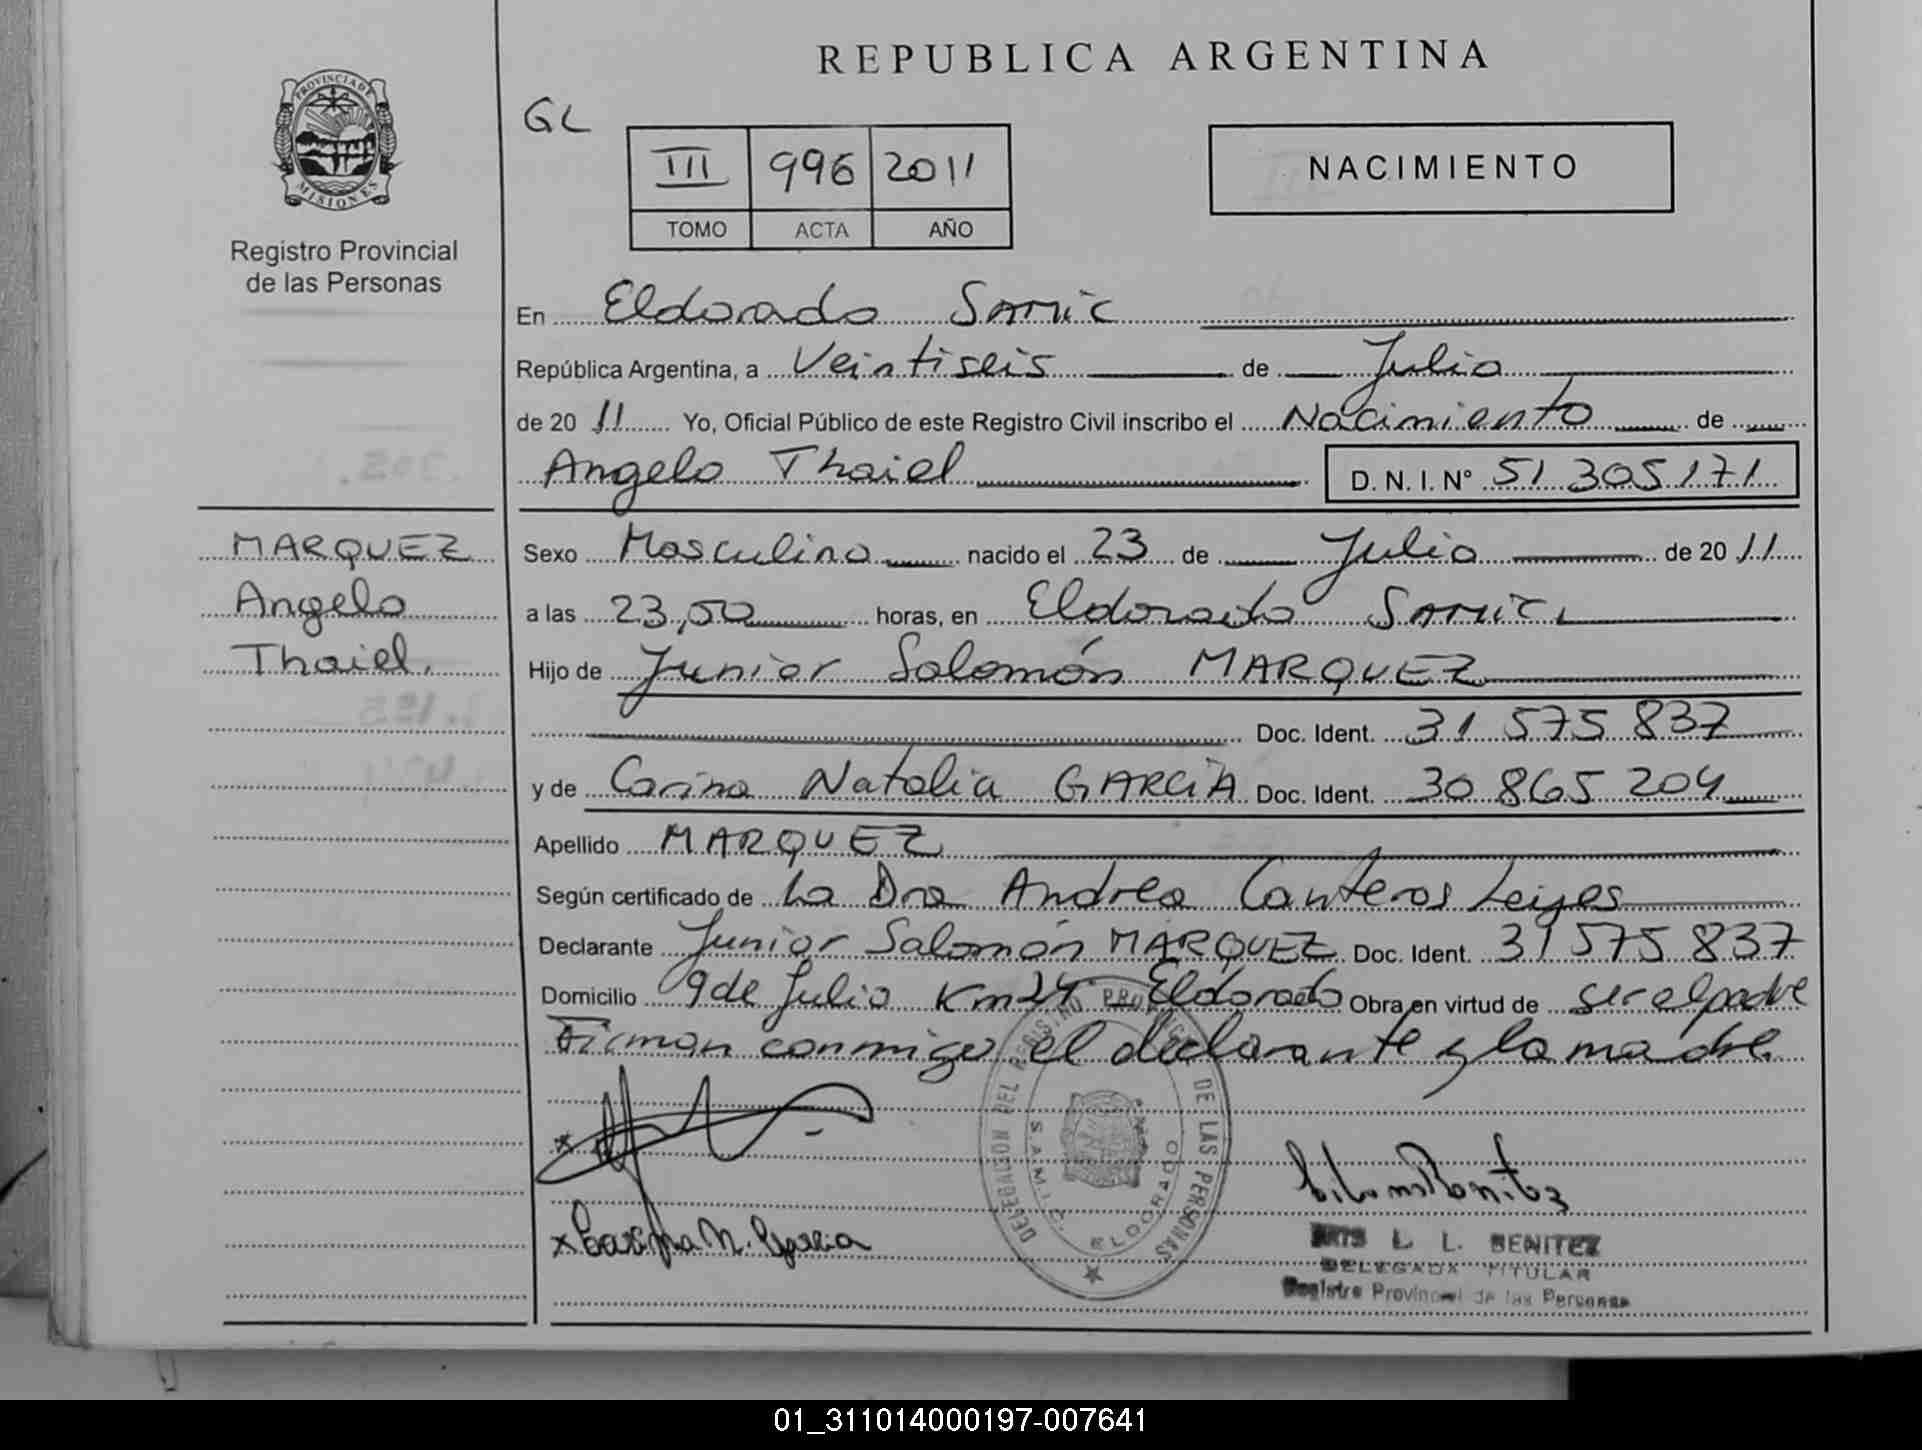 REPUBLICA ARGENTINA
PROVINCIA DE MISIONES
Registro Provincial
de las Personas
GL
III 996 2011
TOMO ACTA AÑO
NACIMIENTO
En Eldorado SAMIC
República Argentina, a Veintiseis de Julio
de 20 11 Yo, Oficial Público de este Registro Civil inscribo el Nacimiento de
Angelo Thaiel D. N. I. Nº 51 305 171
MARQUEZ
Angelo
Thaiel.
Sexo Masculino nacido el 23 de Julio de 20 11
a las 23,50 horas, en Eldorado SAMIC
Hijo de Junior Salomón MARQUEZ
Doc. Ident. 31 575 837
y de Carina Natalia GARCIA Doc. Ident. 30 865 204
Apellido MARQUEZ
Según certificado de La Dra Andrea Canteros Leyes
Declarante Junior Salomón MARQUEZ Doc. Ident. 31 575 837
Domicilio 9 de Julio Km 24 Eldorado Obra en virtud de ser el padre
Firman conmigo el declarante y la madre.
DELEGACION DEL REGISTRO PROVINCIAL DE LAS PERSONAS
S.A.M.I.C. ELDORADO
x Carina N. Garcia
Benitez
L. L. BENITEZ
DELEGADA TITULAR
Registro Provincial de las Personas
01_311014000197-007641